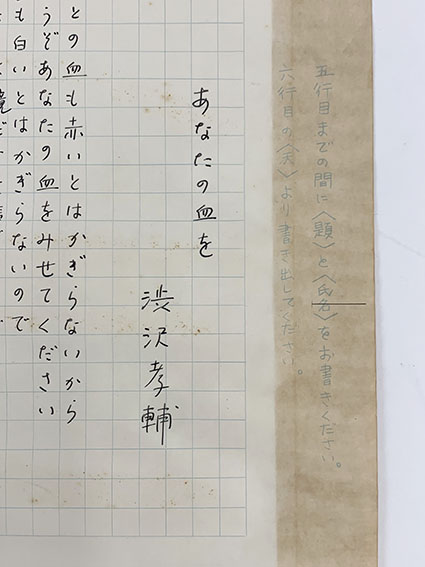 五行目までの間に〈題〉と〈氏名〉をお書きください。
六行目の〈天〉より書き出してください。
あなたの血を
渋沢孝輔
との血も赤いとはかぎらないから
うぞあなたの血をみせてください
も白いとはかぎらないので